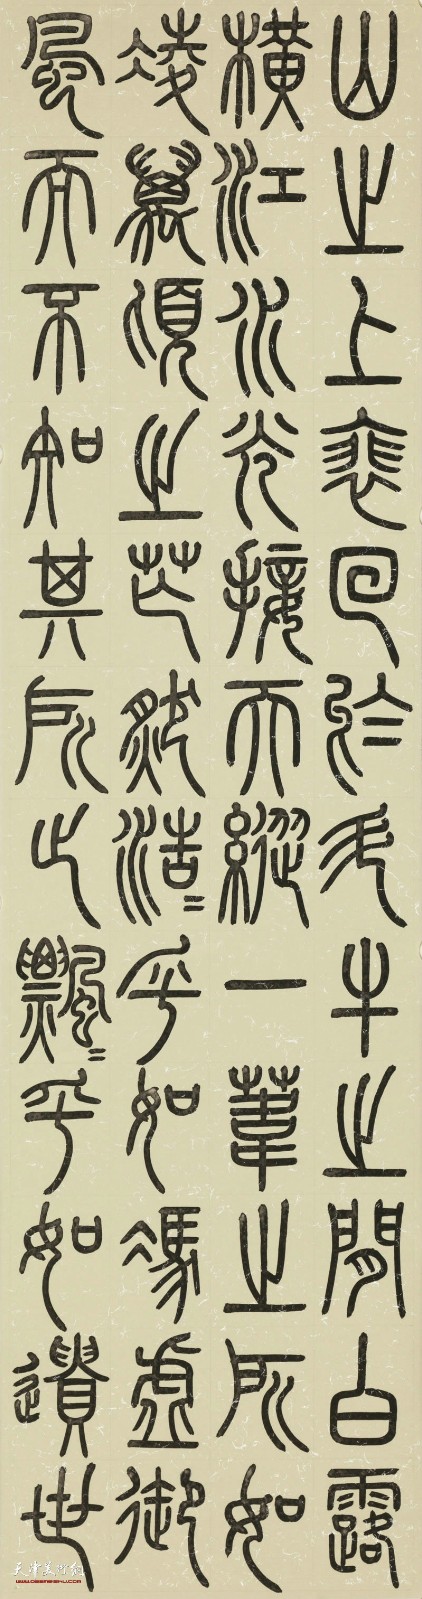 山之上裴回於斗牛之間白露
橫江水光接天縱一葦之所如
凌萬頃之芒然浩〻乎如馮虛御
風而不知其所止飄〻乎如遺世
天津美术网